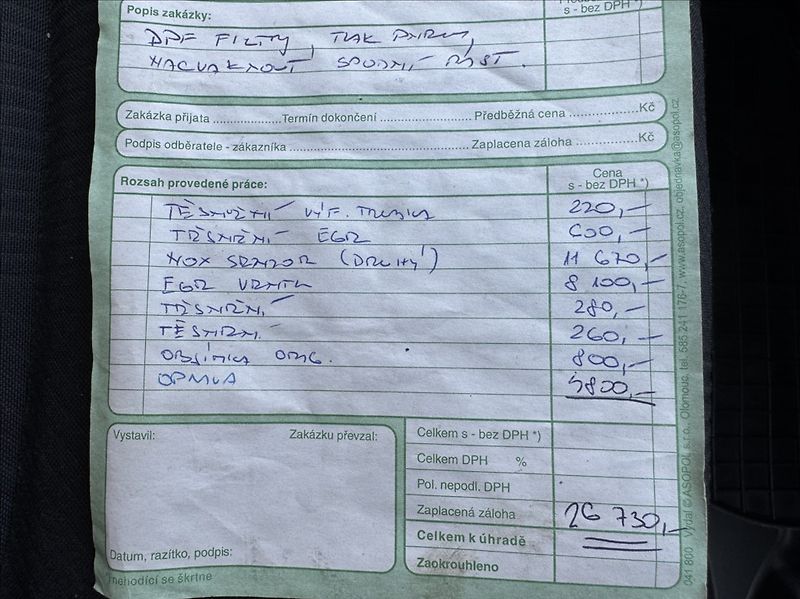 Popis zakázky:
s - bez DPH *)
DPF FILTRY, TLAK PÁRU,
NACVAKNOUT SPODNÍ ČÁST.
Zakázka přijata ..................Termín dokončení ........................Předběžná cena ..................Kč
Podpis odběratele - zákazníka ..............................................Zaplacena záloha ...............Kč
Rozsah provedené práce:
Cena
s - bez DPH *)
TĚSNĚNÍ VÝF. TRUBKA 220,—
TĚSNĚNÍ EGR 600,—
NOX SENZOR (DRUHÝ) 11 670,—
EGR VENTIL 8 100,—
TĚSNĚNÍ 280,—
TĚSNĚNÍ 260,—
OBJÍMKA ORIG. 800,—
OPRAVA 4800,—
Vystavil:
Zakázku převzal:
Datum, razítko, podpis:
Celkem s - bez DPH *)
Celkem DPH %
Pol. nepodl. DPH
Zaplacená záloha
Celkem k úhradě 26 730,—
Zaokrouhleno
nehodící se škrtne
041 800 Vydal © ASOPOL s.r.o., Olomouc, tel. 585 241 176-7, www.asopol.cz, objednavka@asopol.cz